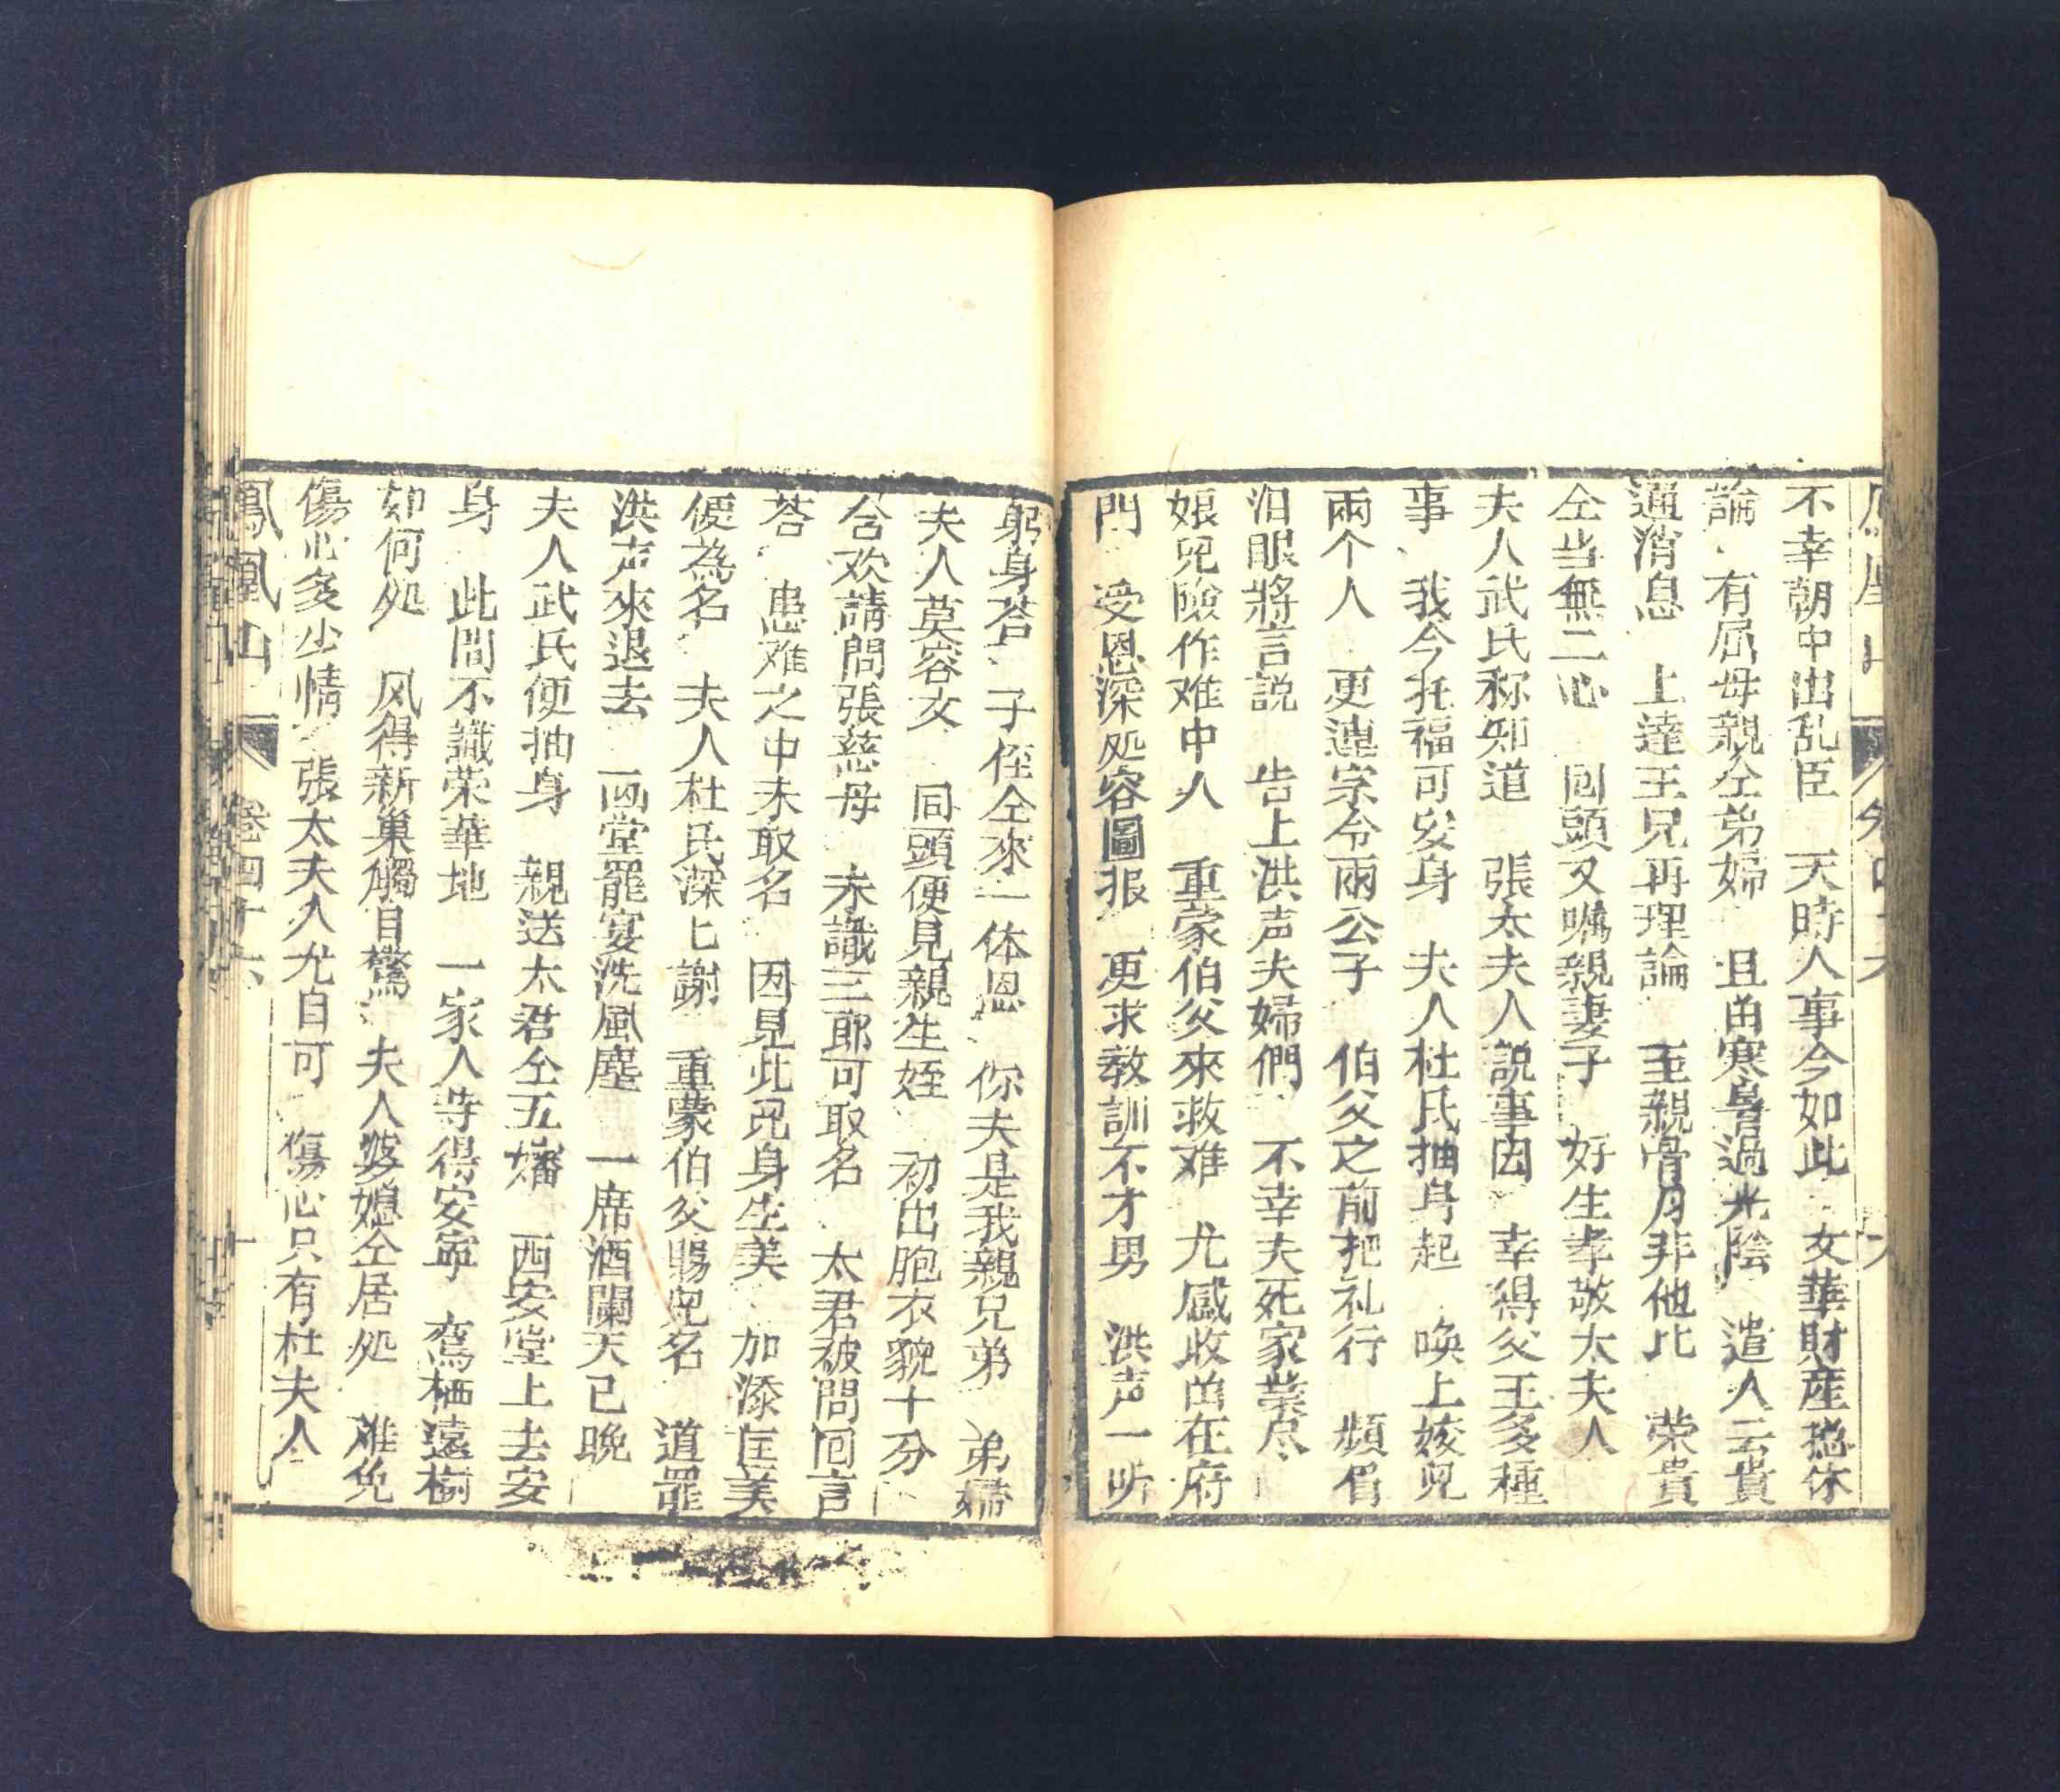 不幸朝中出乱臣 天時人事今如此 女華財産搃休
論 有屈母親仝弟婦 且甾寒舍過光陰 遣人云貴
通消息 上達王兄再理論 至親骨月非他比 荣貴
仝当無二心 回頭又嘱親妻子 好生孝敬太夫人
夫人武氏称知道 張太夫人説事因 幸得父王多種
事 我今托福可安身 夫人杜氏抽身起 喚上嫁兒
兩个人 更連宗令兩公子 伯父之前把礼行 頻眉
泪眼將言説 告上洪声夫婦們 不幸夫死家業尽
娘兒險作难中人 重蒙伯父來救难 尤感收甾在府
門 受恩深処容圖报 更求教訓不才男 洪声一听
躬身荅 子侄仝來一体恩 你夫是我親兄弟 弟婦
夫人莫容女 同頭便見親生姪 初出胞衣貌十分
含欢請問張慈母 未識三郎可取名 太君被問回言
荅 患难之中未取名 因見此児身生美 加添匡美
便為名 夫人杜氏深匕謝 重蒙伯父賜兒名 道罷
洪声來退去 画堂罷宴洗風塵 一席酒闌天已晚
夫人武氏便抽身 親送太君仝五嬸 西安堂上去安
身 此間不識荣華地 一家人等得安寧 鸞栖遠樹
如何処 风得新巢觸目驚 夫人婆媳仝居処 难免
傷心多少情 張太夫人尤自可 傷心只有杜夫人
鳳凰山 卷四十六